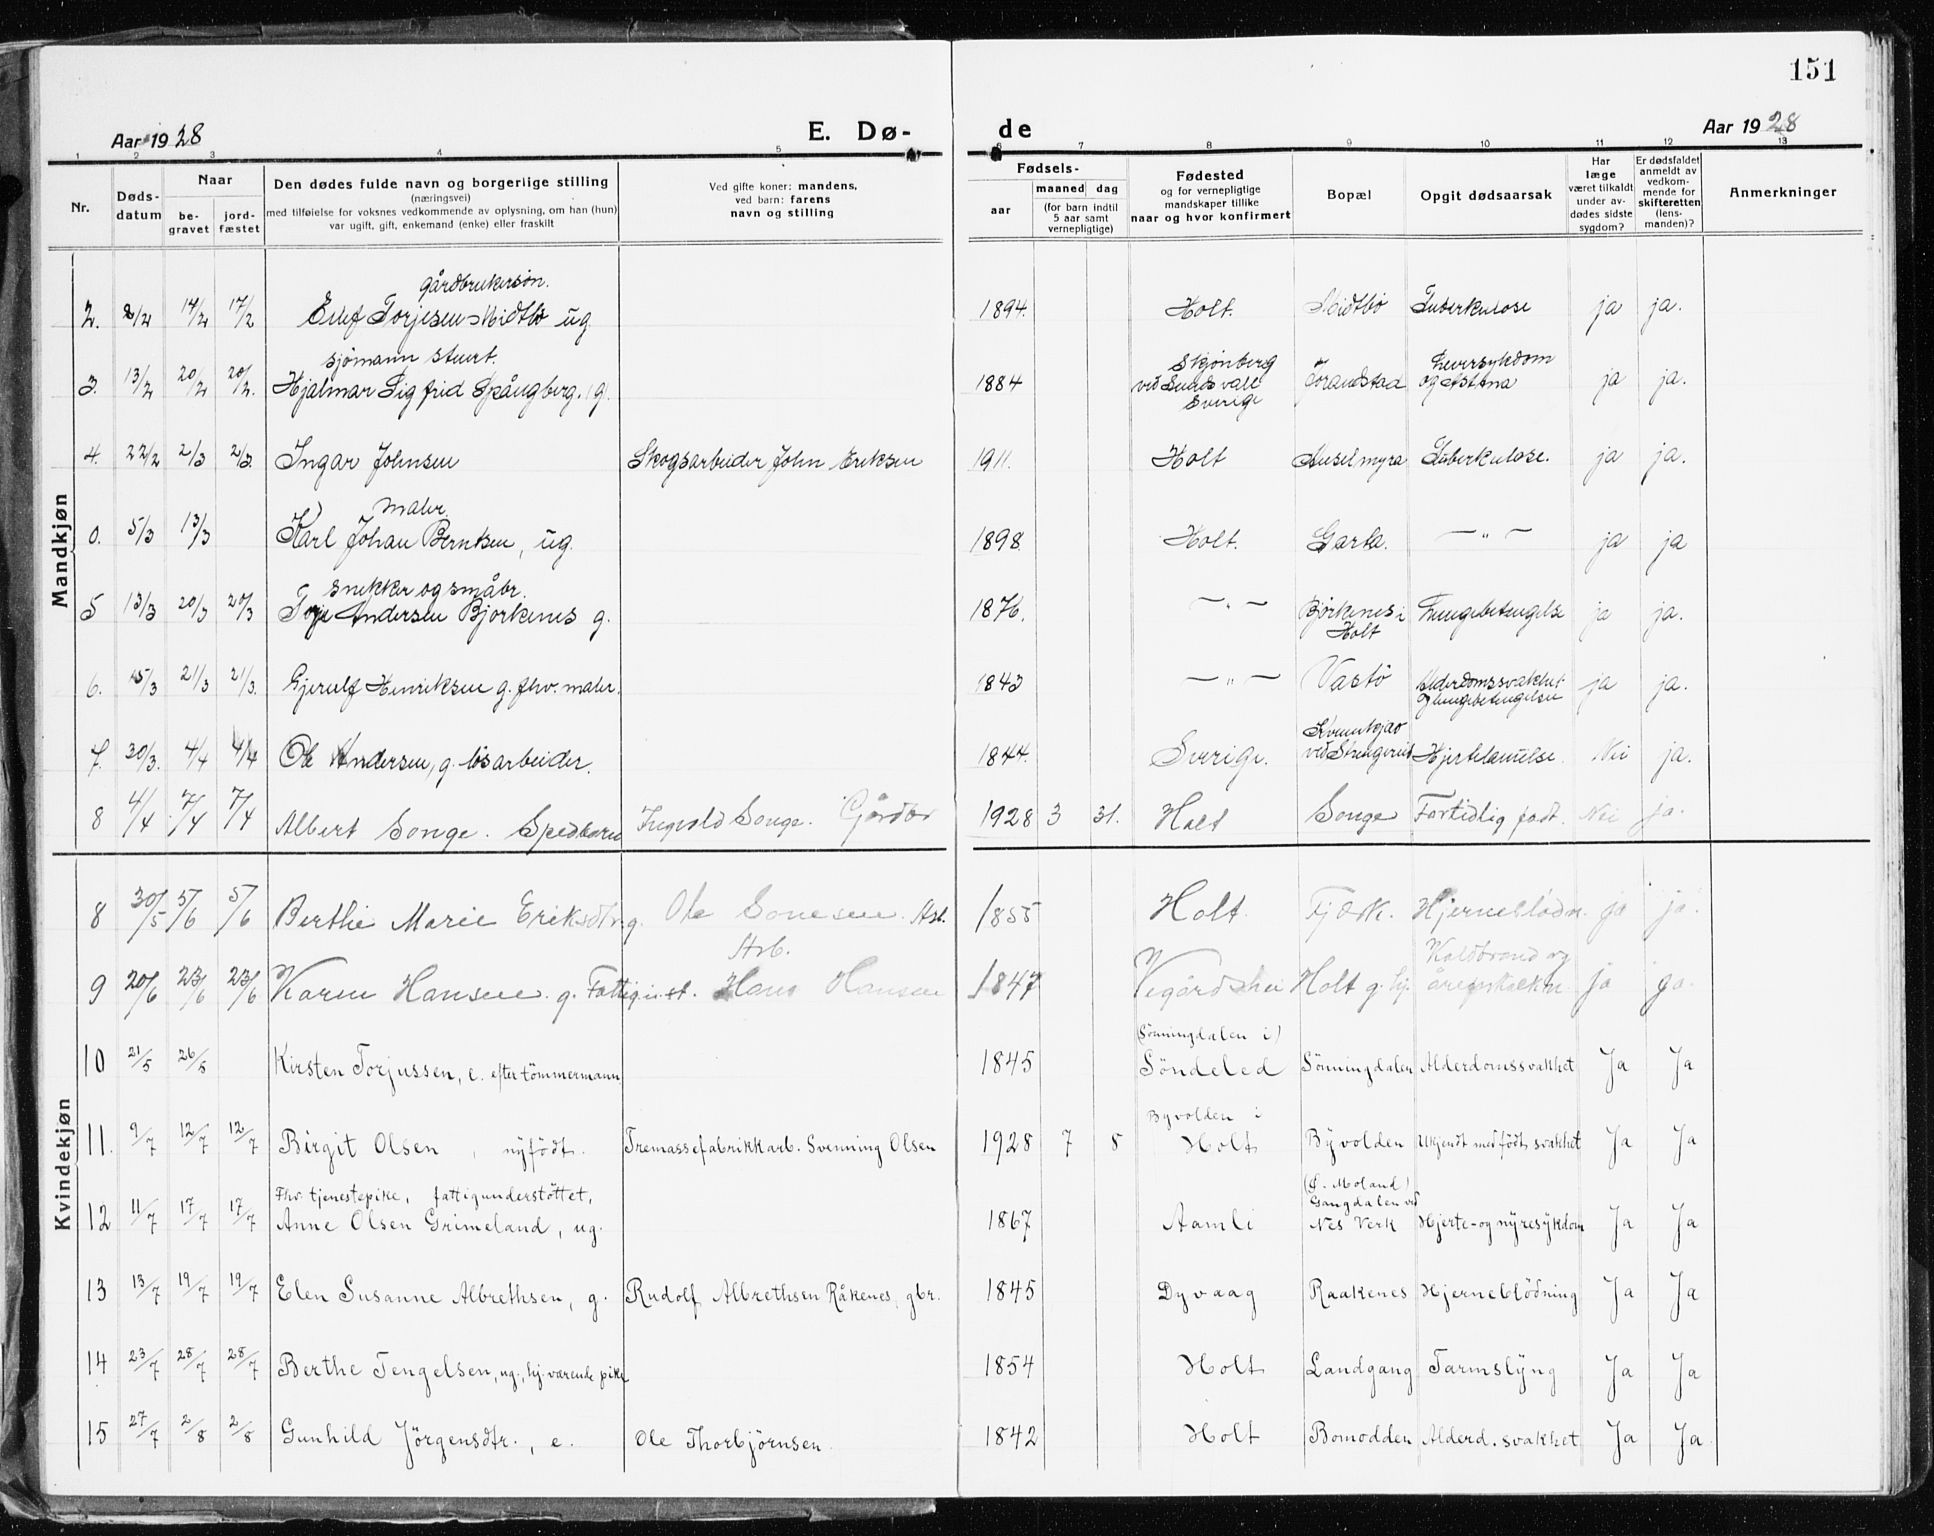 151
Aar 1928 E. Dø- de Aar 1928
1 2 3 4 5 6 7 8 9 10 11 12 13
Nr. Døds-datum Naar be-gravet jord-fæstet Den dødes fulde navn og borgerlige stilling (næringsvei) med tilføielse for voksnes vedkommende av oplysning, om han (hun) var ugift, gift, enkemand (enke) eller fraskilt Ved gifte koner: mandens, ved barn: farens navn og stilling Fødsels- aar maaned dag (for barn indtil 5 aar samt vernepligtige) Fødested og for vernepligtige mandskaper tillike naar og hvor konfirmert Bopæl Opgit dødsaarsak Har læge været tilkaldt under av-dødes sidste sygdom? Er dødsfaldet anmeldt av vedkom-mende for skifteretten (lens-manden)? Anmerkninger
Mandkjøn
gårdbrukersøn.
2. 8/2 14/2 17/2 Torjesen Midtbø ug. 1894. Holt. Midtbø Tuberkulose ja ja.
sjömann stuert. Skjönberg Leversykdom
3. 13/2 20/2 20/2. Hjalmar Sigfrid Spångberg. g. 1884 ved Sundsvall Tvedestrand og Astma ja ja.
Sverige
4. 22/2 2/3 2/3. Ingar Johnsen Skogsarbeider John Eriksen 1911. Holt myra Tuberkulose. ja ja.
maler.
0. 5/3 13/3 Karl Johan Berntsen, ug. 1898 Holt. Garta. — " — ja ja
snekker og småbr.
5 13/3 20/3 20/3 Terje Andersen Bjorkenes g. 1876. — " — Bjørkenes i Lungebetengelse ja ja.
Holt
6. 15/3 21/3 21/3. Gjerulf Henriksen g. fhv. maler. 1843 — " — Vastø Alderdomssvakhet ja ja.
og lungebetengelse
7. 30/3. 4/4 4/4 Ole Andersen, g. løsarbeider. 1844. Sverige. ved Strengereid Hjertelammelse. Nei ja.
8 4/4 7/4 7/4 Albert Songe. Spedbarn Ingvald Songe. Gårdbr 1928 3 31. Holt Songe Fortidlig født. Nei ja.
Kvindekjøn
8 30/5 5/6 5/6 Berthe Marie Eriksdtr. g. Ole Sonesen Arb. 1855 Holt. Fjærk. Hjerneblødn. ja ja.
Arb. Koldbrand og
9 20/6 23/6 23/6 Karen Hansen g. Fattigunst. Hans Hansen 1847 Vegårdshei Holt g. hj. åreforkalkn. ja ja.
(Sönningdalen i)
10 21/5 26/5 Kirsten Torjussen, e. efter tömmermann 1845 Söndeled Sönningdalen Alderdomssvakhet Ja Ja
Byvolden i
11. 9/7 12/7 12/7 Birgit Olsen, nyfödt. Tremassefabrikkarb. Svenning Olsen 1928 7 8 Holt Byvolden Ukjendt medfödt svakhet Ja Ja
Fhv. tjenestepike, fattigunderstöttet, (Ö. Moland)
Gangdalen ved
12 11/7 17/7 17/7 Anne Olsen Grimeland, ug. 1867 Aamli Nes Verk Hjerte- og nyresykdom Ja Ja
13 13/7 19/7 19/7 Elen Susanne Albrethsen, g. Rudolf Albrethsen Råkenes, gbr. 1845 Dyvaag Raakenes Hjerneblödning Ja Ja
14 23/7 28/7 28/7 Berthe Tengelsen, ug., hj. værende pike 1854 Holt Landgang Tarmslyng Ja Ja
15 27/7 2/8 2/8 Gunhild Jörgensdtr., e. Ole Thorbjörnsen 1842 Holt Bomodden Alderd. svakhet Ja Ja